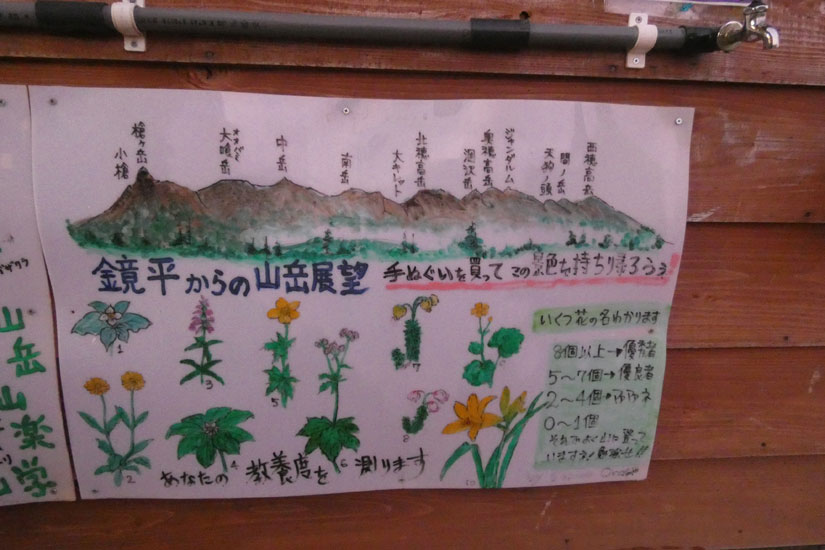 小槍
槍ヶ岳
オオバミ
大喰岳
中岳
南岳
大キレット
北穂高岳
涸沢岳
奥穂高岳
ジャンダルム
天狗ノ頭
間ノ岳
西穂高岳
鏡平からの山岳展望
手ぬぐいを買ってこの景色を持ち帰ろうぅ
いくつ花の名わかります
8個以上→優秀者
5〜7個→優良者
2〜4個→
0〜1個
1
3
5
7
2
4
6
8
あなたの教養度を測ります
山岳山楽学